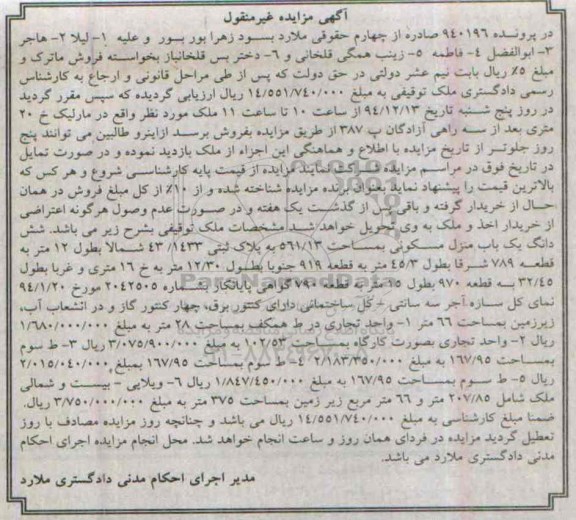 آگهی مزایده غیرمنقول
در پرونده ۹۴۰۱۹۶ صادره از چهارم حقوقی ملارد بسود زهرا پور بور و علیه ۱- لیلا ۲- هاجر
۳- ابوالفضل ۴- فاطمه ۵- زینب همگی قلخانی و ۶- دختر بس قلخانباز بخواسته فروش ماترک و
مبلغ ۵٪ ریال بابت نیم عشر دولتی در حق دولت که پس از طی مراحل قانونی و ارجاع به کارشناس
رسمی دادگستری ملک توقیفی به مبلغ ۱۴/۵۵۱/۷۴۰/۰۰۰ ریال ارزیابی گردیده که سپس مقرر گردید
در روز پنج شنبه تاریخ ۹۴/۱۲/۱۳ از ساعت ۱۰ تا ساعت ۱۱ ملک مورد نظر واقع در مارلیک خ ۲۰
متری بعد از سه راهی آزادگان پ ۳۸۷ از طریق مزایده بفروش برسد ازاینرو طالبین می توانند پنج
روز جلوتر از تاریخ مزایده با اطلاع و هماهنگی این اجراء از ملک بازدید نموده و در صورت تمایل
در تاریخ فوق در مراسم مزایده شرکت نمایند مزایده از قیمت پایه کارشناسی شروع و هر کس که
بالاترین قیمت را پیشنهاد نماید بعنوان برنده مزایده شناخته شده و از ۱۰٪ از کل مبلغ فروش در همان
حال از خریدار گرفته و باقی پس از گذشت یک هفته و در صورت عدم وصول هرگونه اعتراضی
از خریدار اخذ و ملک به وی تحویل خواهد شد مشخصات ملک توقیفی بشرح زیر می باشد. شش
دانگ یک باب منزل مسکونی بمساحت ۵۶۱/۱۳ به پلاک ثبتی ۴۳/۱۴۳۳ شمالا بطول ۱۲ متر به
قطعه ۷۸۹ شرقا بطول ۴۵/۳ متر به قطعه ۹۱۹ جنوبا بطول ۱۲/۳۰ متر به خ ۱۶ متری و غربا بطول
۳۲/۴۵ به قطعه ۹۷۰ بطول ۱۵ متر به قطعه ۷۹۰ گواهی پایانکار شماره ۲۰۴۲۵۰۵ مورخ ۹۴/۱/۲۰
نمای کل سازه آجر سه سانتی - کل ساختمانی دارای کنتور برق، چهار کنتور گاز و در انشعاب آب،
زیرزمین بمساحت ۶۶ متر ۱- واحد تجاری در ط همکف بمساحت ۲۸ متر به مبلغ ۱/۶۸۰/۰۰۰/۰۰۰
ریال ۲- واحد تجاری بصورت کارگاه بمساحت ۱۰۲/۵۳ به مبلغ ۳/۰۷۵/۹۰۰/۰۰۰ ریال ۳- ط سوم
بمساحت ۱۶۷/۹۵ به مبلغ ۲/۱۸۳/۳۵۰/۰۰۰ ۴- ط سوم بمساحت ۱۶۷/۹۵ بمبلغ ۲/۰۱۵/۰۴۰/۰۰۰
ریال ۵- ط سوم بمساحت ۱۶۷/۹۵ به مبلغ ۱/۸۴۷/۴۵۰/۰۰۰ ریال ۶- ویلایی - بیست و شمالی
ملک شامل ۲۰۷/۸۵ متر و ۶۶ متر مربع زیر زمین بمساحت ۳۷۵ متر به مبلغ ۳/۷۵۰/۰۰۰/۰۰۰ ریال.
ضمنا مبلغ کارشناسی به مبلغ ۱۴/۵۵۱/۷۴۰/۰۰۰ ریال می باشد و چنانچه روز مزایده مصادف با روز
تعطیل گردید مزایده در فردای همان روز و ساعت انجام خواهد شد. محل انجام مزایده اجرای احکام
مدنی دادگستری ملارد می باشد.
مدیر اجرای احکام مدنی دادگستری ملارد